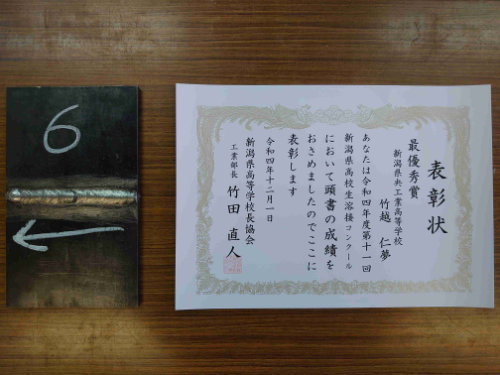 6
表彰状
最優秀賞
新潟県央工業高等学校
竹越 仁夢
あなたは令和四年度第十一回
新潟県高校生溶接コンクール
において頭書の成績を
おさめましたのでここに
表彰します
令和四年十二月一日
新潟県高等学校長協会
工業部長 竹田 直人